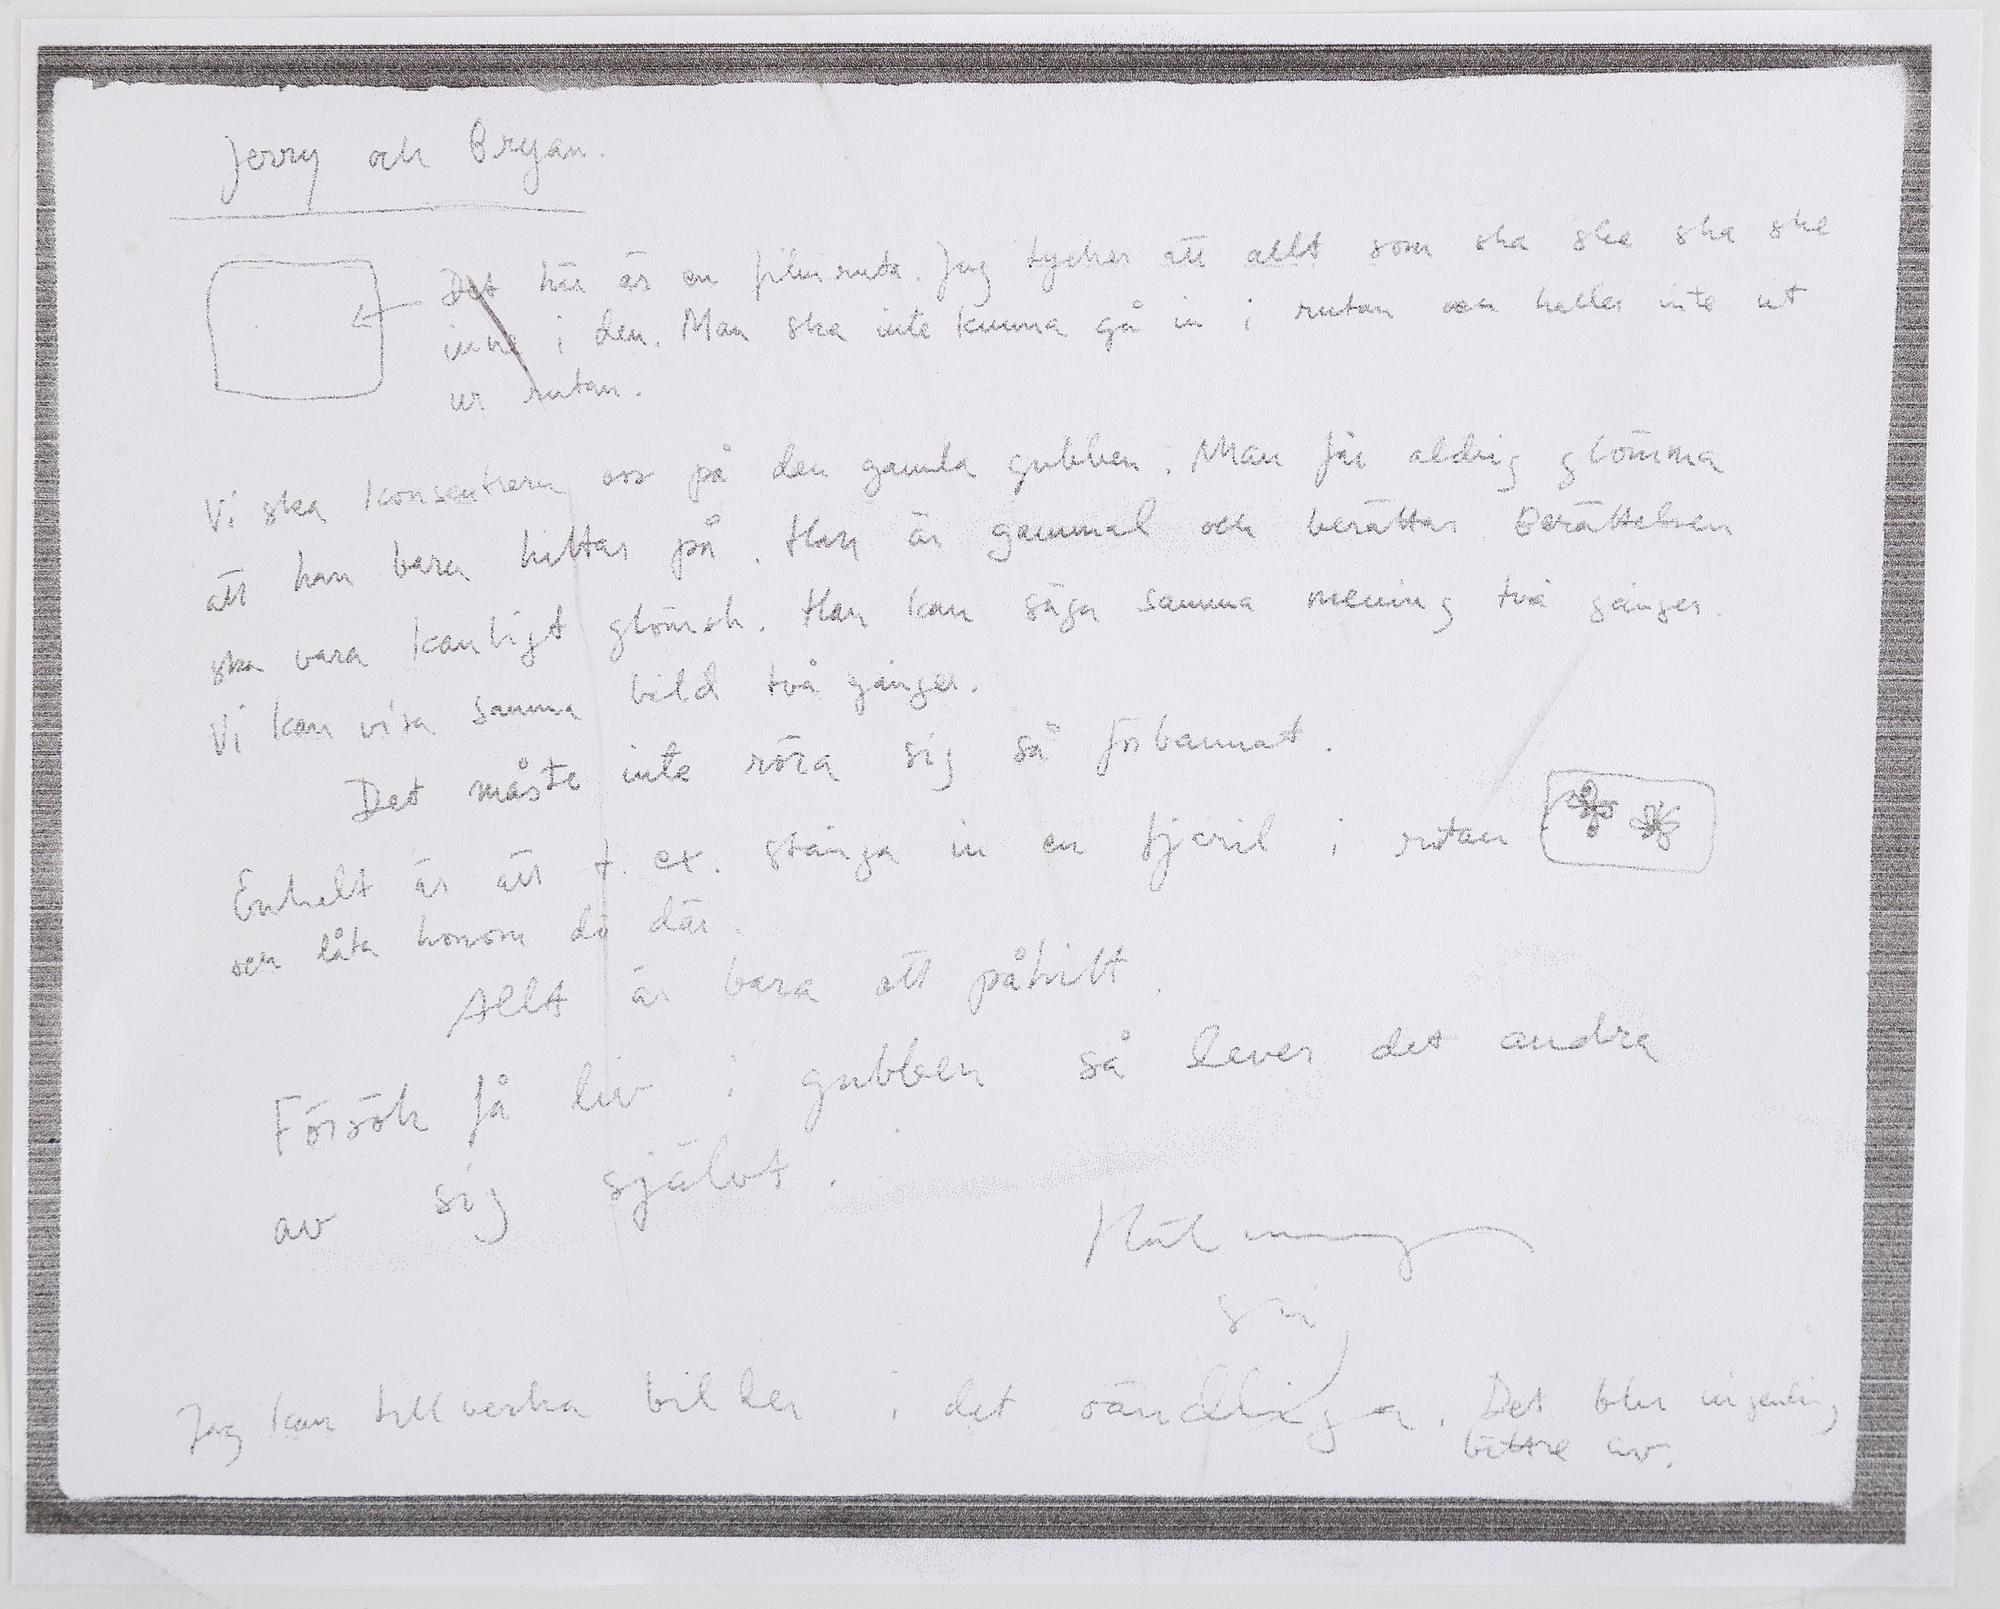 Jerry och Bryan.
Det här är en filmruta. Jag tycker att allt som ska ske ska ske
inne i den. Man ska inte kunna gå in i rutan och heller inte ut
ur rutan.
Vi ska konsentrera oss på den gamla gubben. Man får aldrig glömma
att han bara hittar på. Han är gammal och berättar. Berättelsen
ska vara kanligt glömsk. Han kan säga samma mening två gånger.
Vi kan visa samma bild två gånger.
Det måste inte röra sig så förbannat.
Enkelt är att t. ex. stänga in en fjäril i rutan
och låta honom dö där.
Allt är bara ett påhitt.
Försök få liv i gubben så lever det andra
av sig självt.
Jag kan tillverka bilder i det oändliga. Det blir ingenting
bättre av.